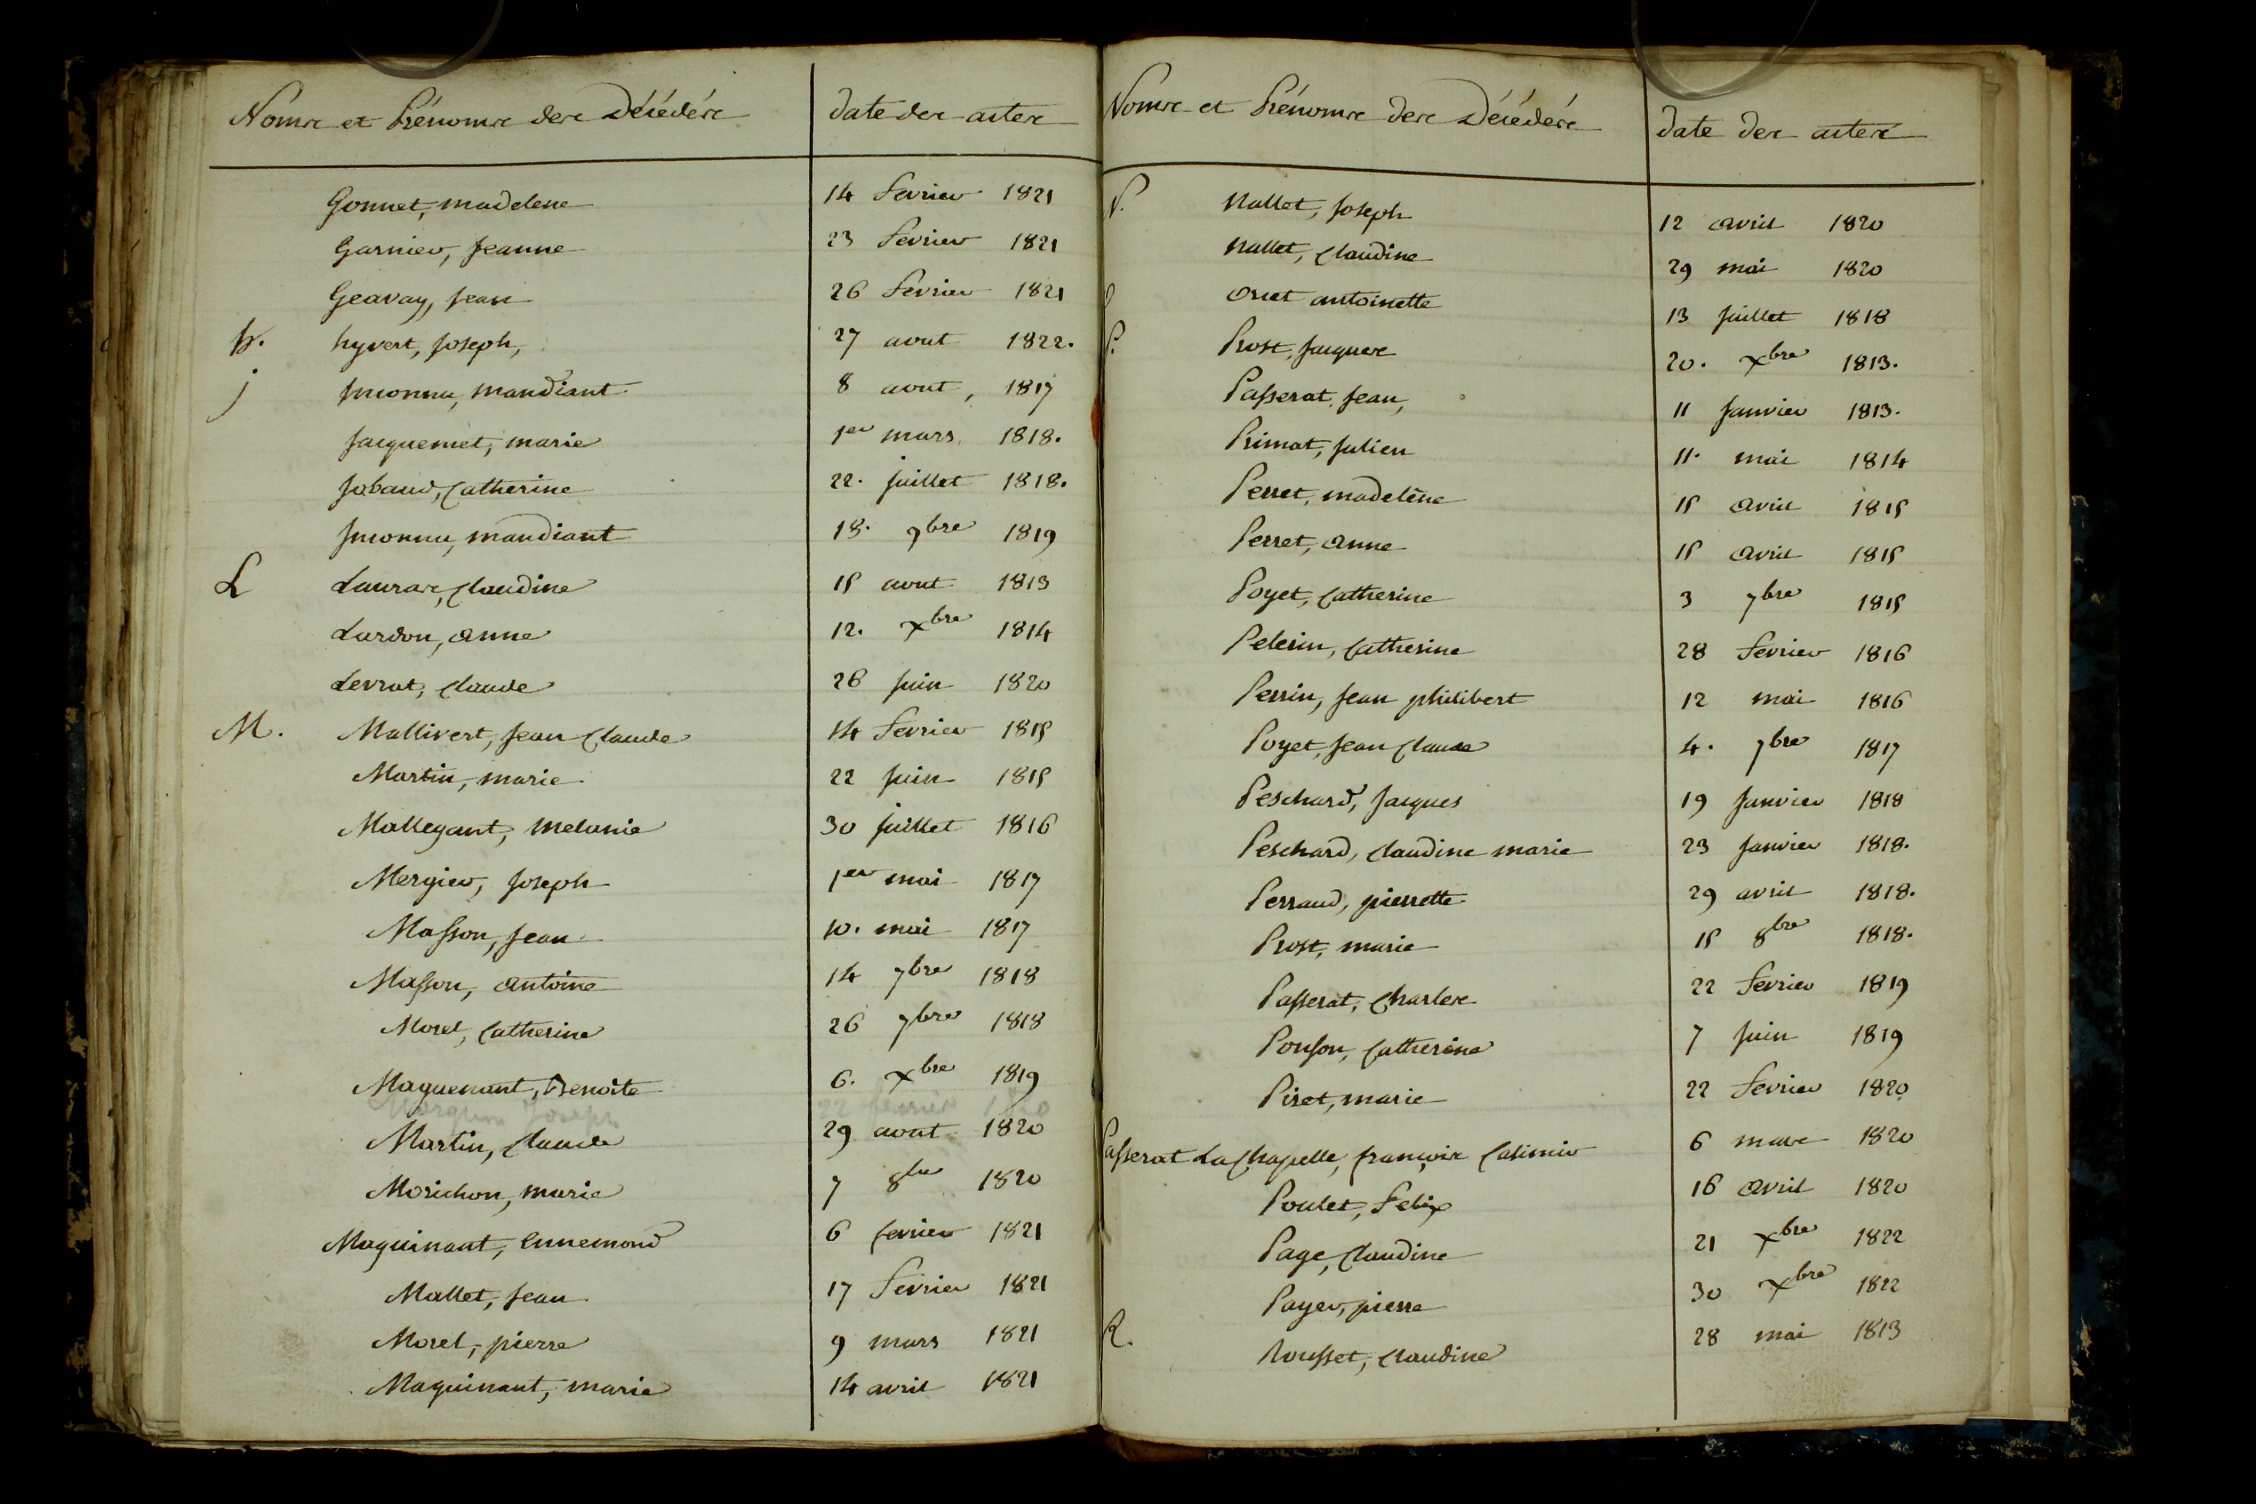 Noms et Prénoms des Décédés date des actes
Gonnet, madelene 14 fevrier 1821
Garnier, Jeanne 23 fevrier 1821
Geavay, Jean 26 fevrier 1821
h. hyvert, Joseph, 27 aout 1822.
j Inconnu, mandiant 8 aout, 1817
Jacquemet, marie 1er mars 1818.
Jobaud, Catherine 22. juillet 1818.
Inconnu, mandiant 18. 9bre 1819
L Lauras, Claudine 15 aout 1813
Lardon, anne 12. xbre 1814
Levrat, Claude 26 juin 1820
M. Mallivert, Jean Claude 14 fevrier 1815
Martin, marie 22 juin 1815
Mallegant, melanie 30 juillet 1816
Mergier, Joseph 1er mai 1817
Masson, Jean 10. mai 1817
Masson, antoine 14 7bre 1818
Morel, Catherine 26 7bre 1818
Maguenant, Benoite 6. xbre 1819
Morgon Joseph 22 fevrier 1820
Martin, Claude 29 aout 1820
Morichon, marie 7 8bre 1820
Maguinant, Ennemond 6 fevrier 1821
Mallet, Jean 17 fevrier 1821
Morel, pierre 9 mars 1821
Maguinant, marie 14 avril 1821
Noms et Prénoms des Décédés date des actes
N. Nallet, Joseph 12 avril 1820
Nallet, Claudine 29 mai 1820
Oriet antoinette 13 juillet 1818
P. Prost, Jacques 20. xbre 1813.
Passerat, Jean, 11 Janvier 1813.
Primat, Julien 11. mai 1814
Perret, madelène 15 avril 1815
Perret, anne 15 avril 1815
Poyet, Catherine 3 7bre 1815
Pelerin, Catherine 28 fevrier 1816
Perrin, Jean philibert 12 mai 1816
Poyet, Jean Claude 4. 7bre 1817
Peschard, Jacques 19 Janvier 1818
Peschard, Claudine marie 23 Janvier 1818.
Perraud, pierrette 29 avril 1818.
Prost, marie 15 8bre 1818.
Passerat, Charles 22 fevrier 1819
Ponson, Catherine 7 juin 1819
Piret, marie 22 fevrier 1820
Passerat La Chapelle, françois Casimir 6 mars 1820
Poulet, Felix 16 avril 1820
Page, Claudine 21 xbre 1822
Payer, pierre 30 xbre 1822
R. Rousset, Claudine 28 mai 1813